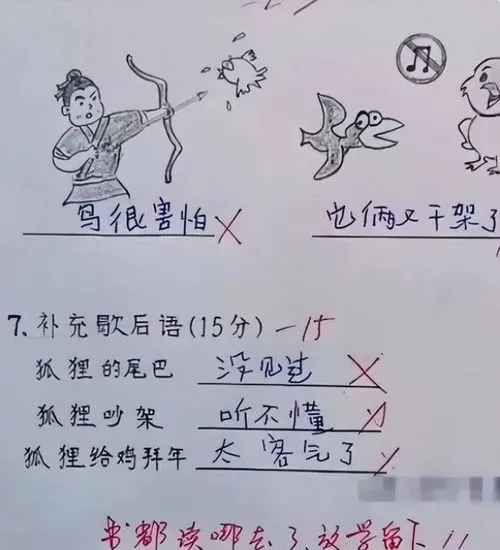 鸟很害怕
它俩又干架了
7、补充歇后语(15分) -15
狐狸的尾巴 没见过
狐狸吵架 听不懂
狐狸给鸡拜年 太客气了
书都读哪去了,放学留下!!